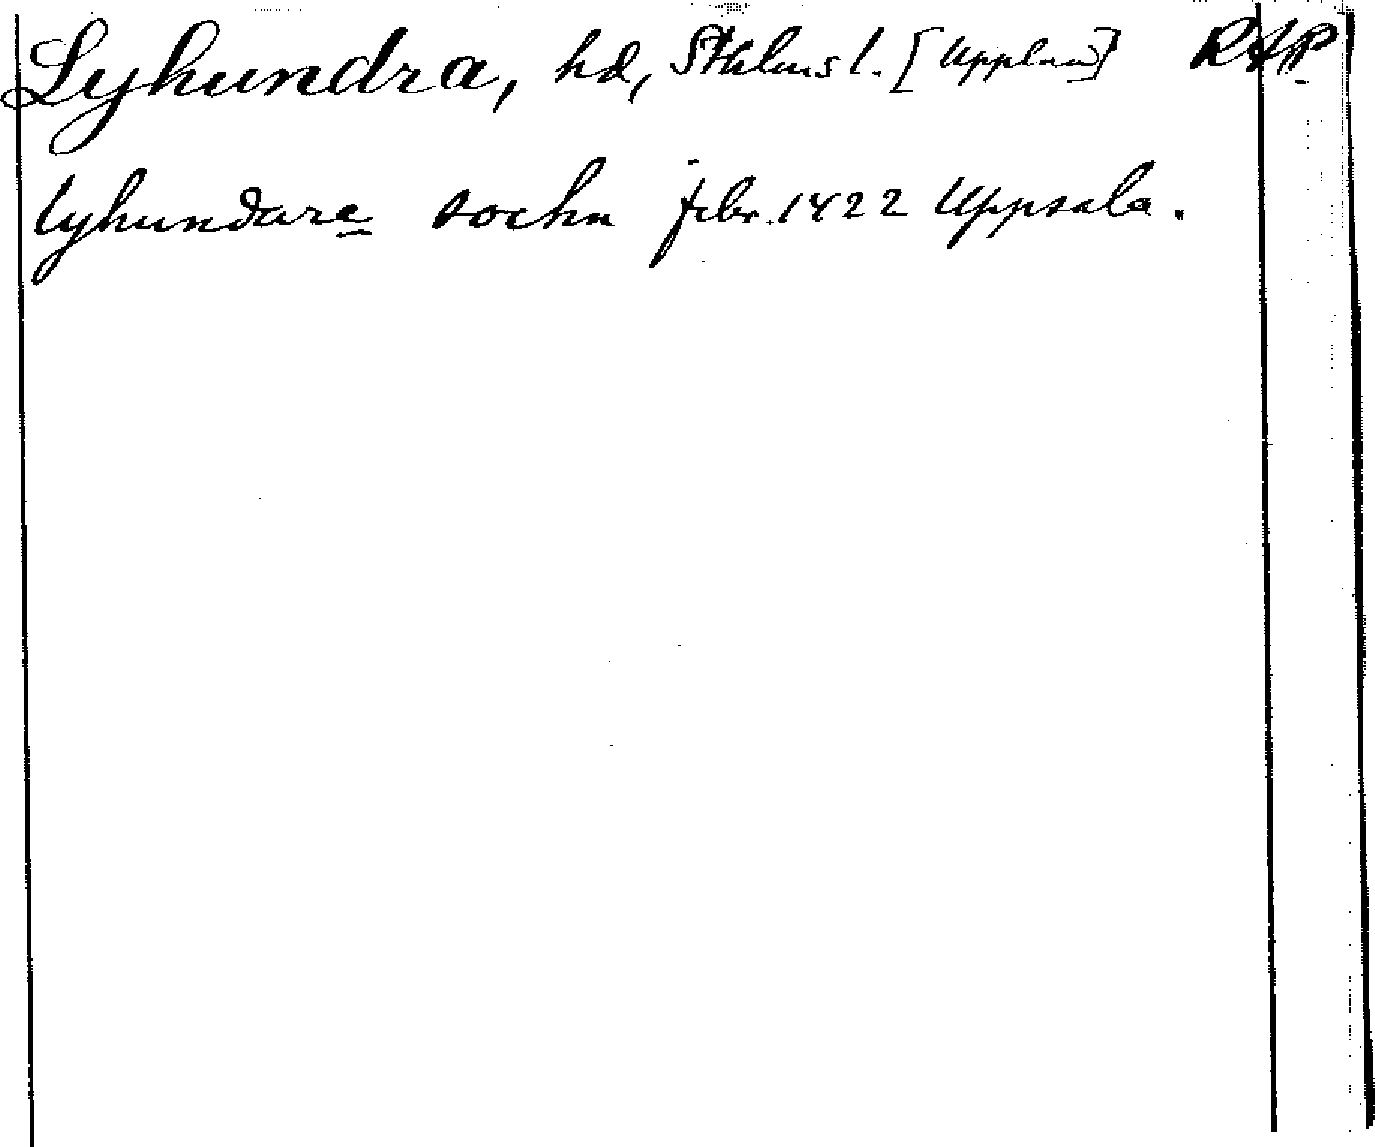 Lyhundra, hd, Sthlms l. [Uppland] RAP
lyhundare sochn febr. 1422 Uppsala.